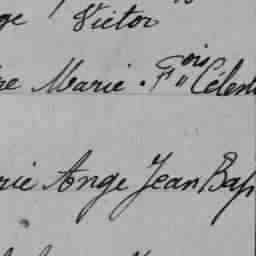 ge Victor
re Marie. Fois Célest
rie Ange Jean Bap